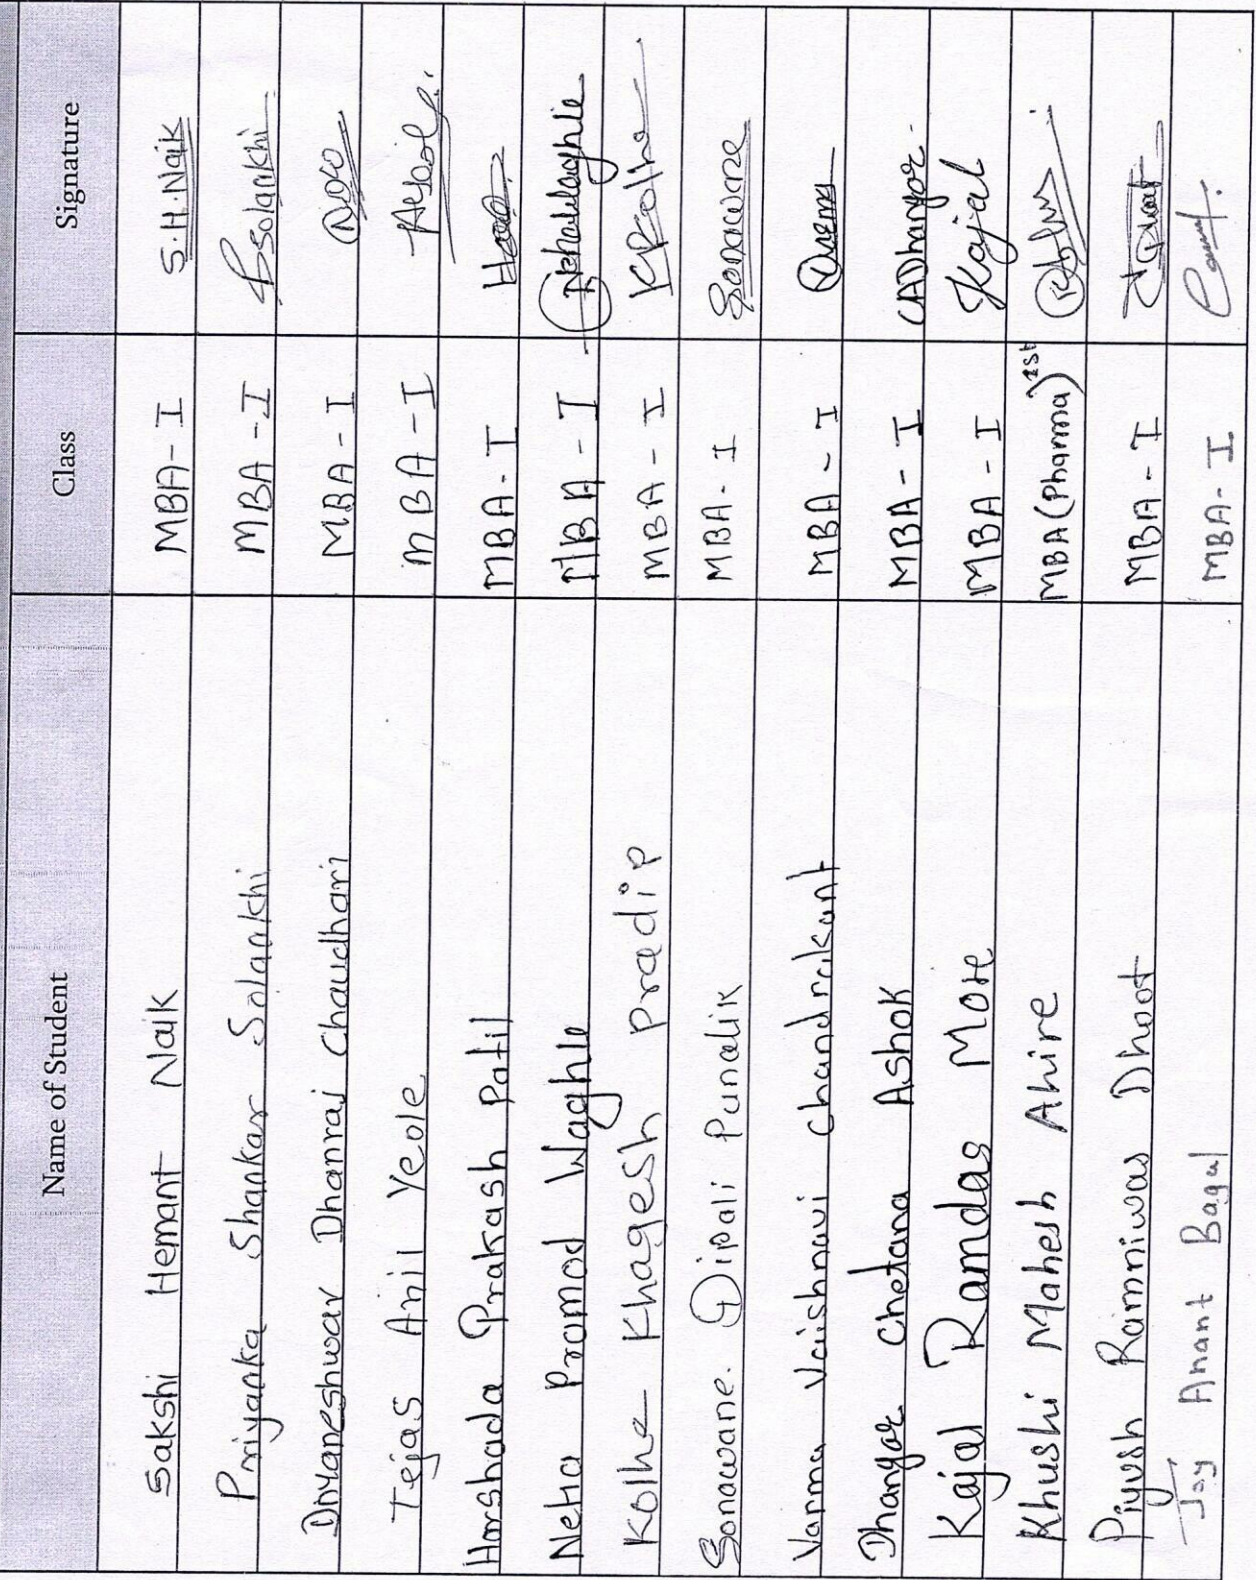 Name of Student Class Signature
Sakshi Hemant Naik MBA-I S.H.Naik
Priyanka Shankar Solankhi MBA-I PSolankhi
Dnyaneshwar Dhanraj Chaudhari MBA-I
Tejas Anil Yeole MBA-I
Harshada Prakash Patil MBA-I
Neha Pramod Waghle MBA-I
Kolhe Khagesh Pradip MBA-I KPKolhe
Sonawane. Dipali Pundlik MBA-I Sonawane
Varma Vaishnavi Chandrakant MBA-I
Dhangar Chetana Ashok MBA-I CADhangar
Kajal Ramdas More MBA-I Kajal
Khushi Mahesh Ahire MBA(Pharma) 1st
Piyush Ramniwas Dhoot MBA-I
Joy Anant Bagul MBA-I